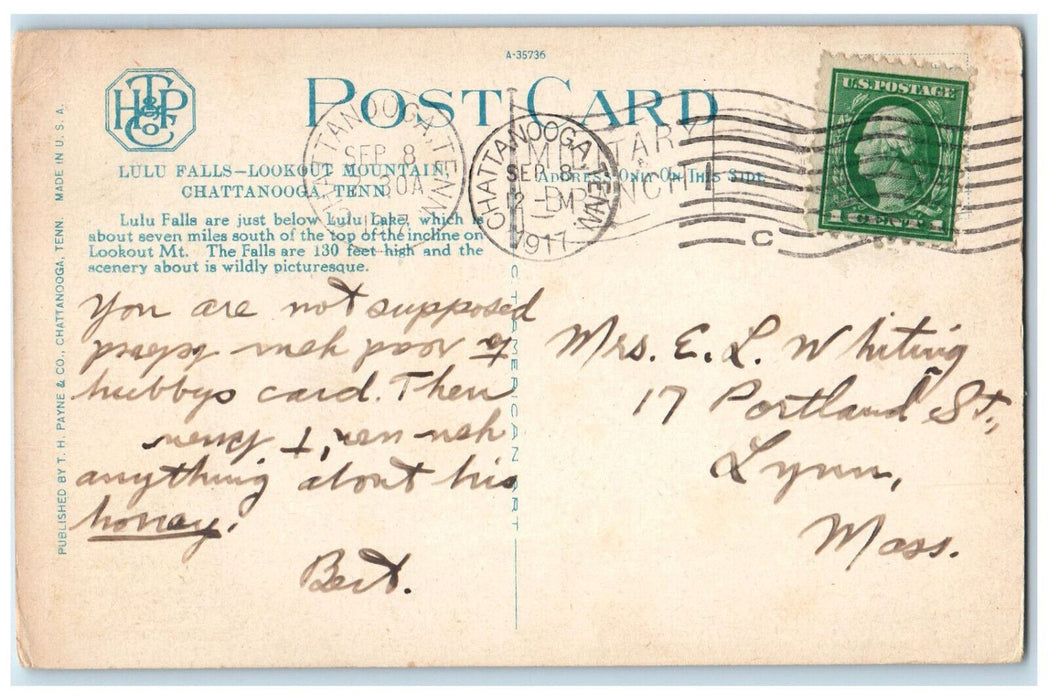 A-35736
HTP & Co
POST CARD
U.S. POSTAGE
1 CENT 1
CHATTANOOGA, TENN.
SEP 8
1917
CHATTANOOGA, TENN.
SEP 8
1917
MILITARY
C
ADDRESS ONLY ON THIS SIDE
LULU FALLS—LOOKOUT MOUNTAIN,
CHATTANOOGA, TENN.
Lulu Falls are just below Lulu Lake, which is
about seven miles south of the top of the incline on
Lookout Mt. The Falls are 130 feet high and the
scenery about is wildly picturesque.
You are not supposed
to read your beloved
hubbys card. Then
you won't know
anything about his
honey.
Bert.
Mrs. E. L. Whiting
17 Portland St.,
Lynn,
Mass.
PUBLISHED BY T. H. PAYNE & CO., CHATTANOOGA, TENN. MADE IN U. S. A.
C. T. AMERICAN ART